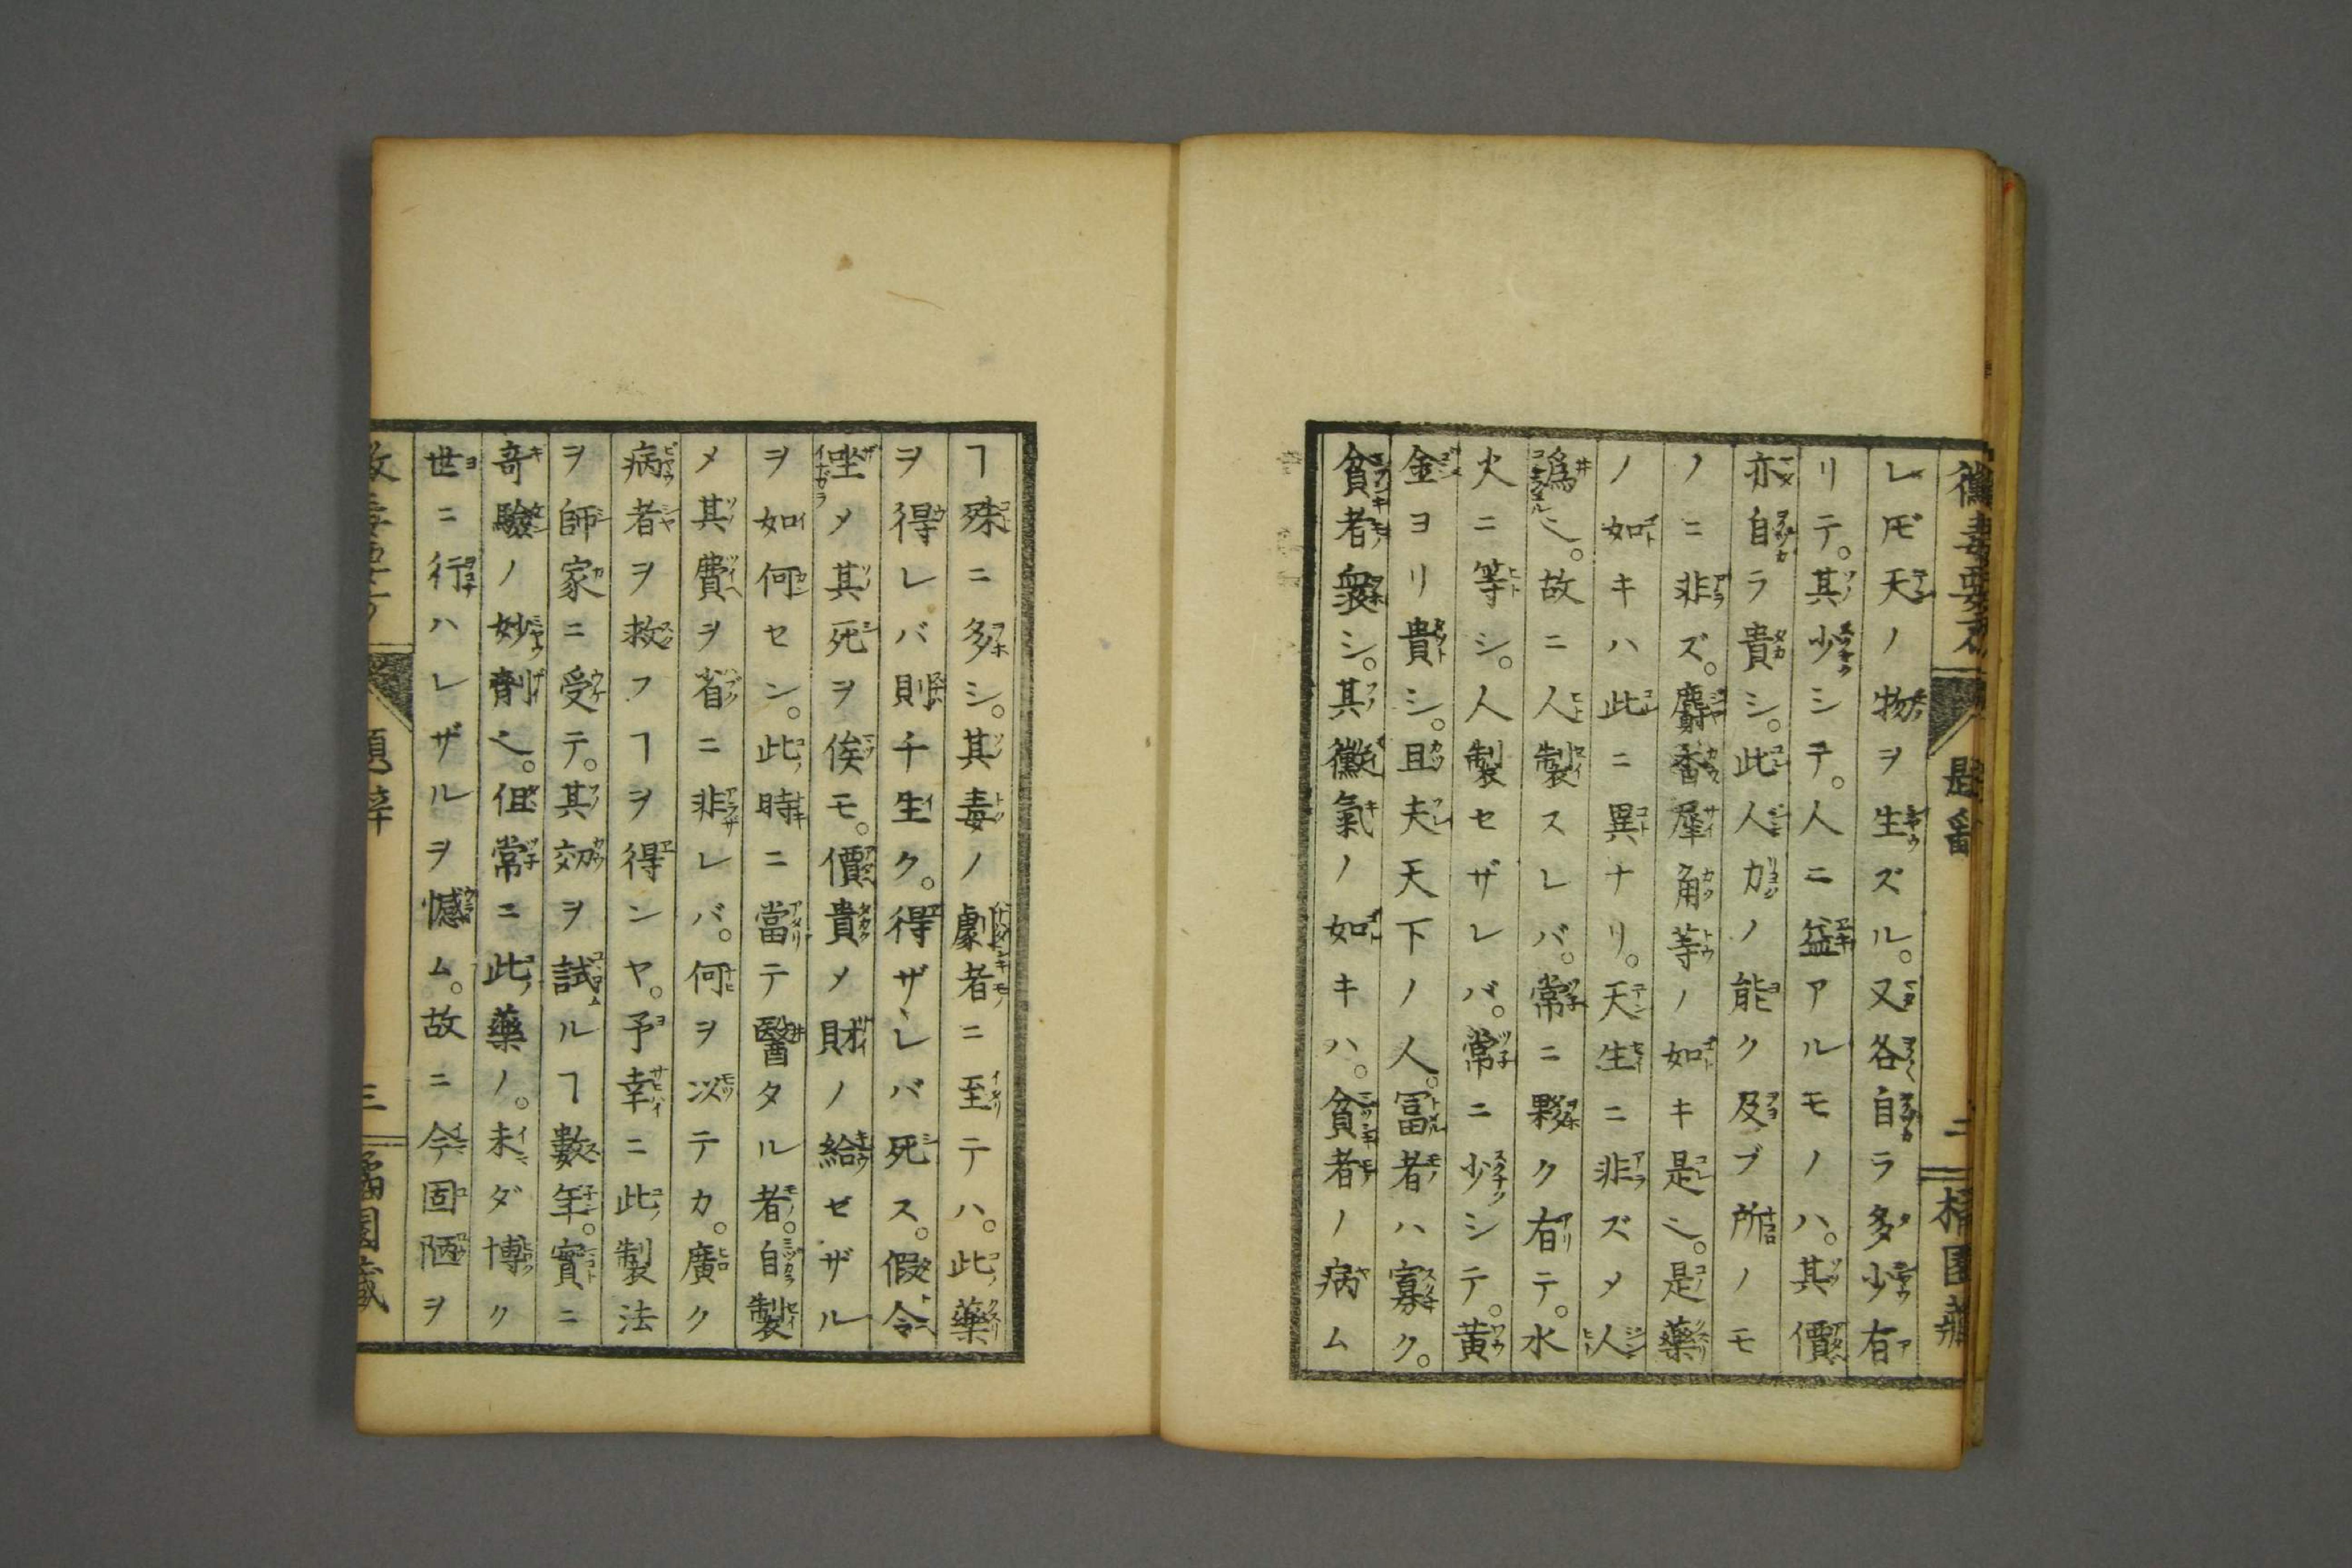 レ𪜈天ノ物ヲ生ズル。又各自ラ多少有
リテ。其少シテ。人ニ益アルモノハ。其價
亦自ラ貴シ。此人力ノ能ク及ブ所ノモ
ノニ非ズ。麝香犀角等ノ如キ是也。是藥
ノ如キハ此ニ異ナリ。天生ニ非ズメ人
爲也。故ニ人製スレバ。常ニ夥ク有テ。水
火ニ等シ。人製セザレバ。常ニ少シテ。黄
金ヨリ貴シ。且夫天下ノ人。冨者ハ寡ク。
貧者衆シ。其黴氣ノ如キハ。貧者ノ病ム
ヿ殊ニ多シ。其毒ノ劇者ニ至テハ。此藥
ヲ得レバ則千生ク。得ザレバ死ス。假令
坐メ其死ヲ俟モ。價貴メ財ノ給ゼザル
ヲ如何セン。此時ニ當テ醫タル者。自製
メ其費ヲ省ニ非レバ。何ヲ以テカ。廣ク
病者ヲ救フヿヲ得ンヤ。予幸ニ此製法
ヲ師家ニ受テ。其効ヲ試ルヿ數年。實ニ
奇驗ノ妙劑也。但常ニ此藥ノ。未ダ博ク
世ニ行ハレザルヲ憾ム。故ニ今固陋ヲ
三